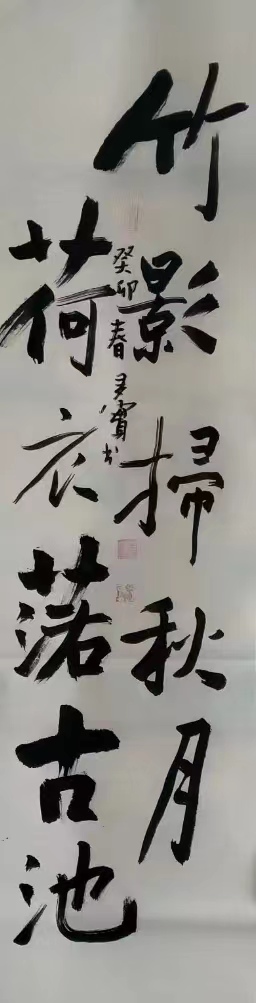 竹影掃秋月
荷衣落古池
癸卯春
書